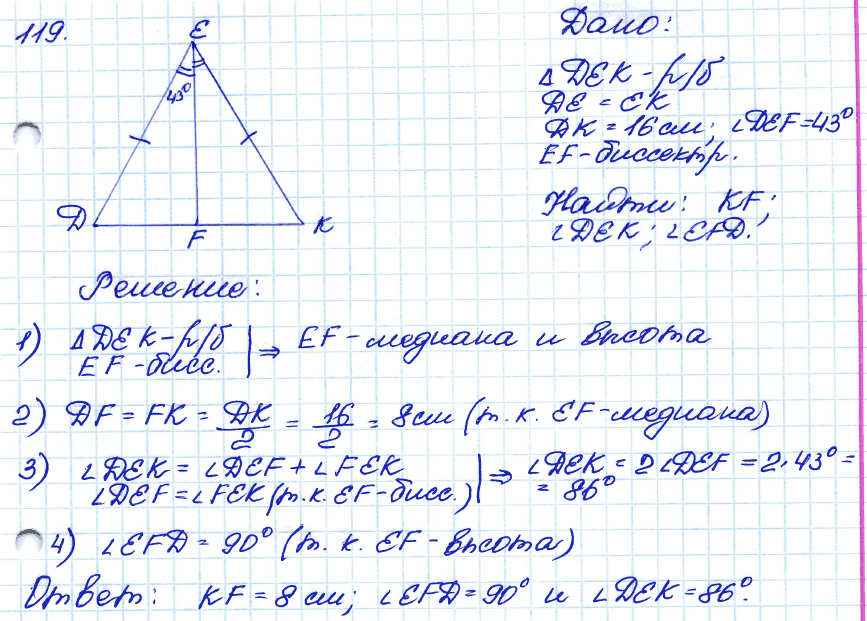 119.
E
43°
D
F
K
Дано:
△DEK - р/б
DE = EK
DK = 16 см; ∠DEF = 43°
EF - биссектр.
Найти: KF;
∠DEK; ∠EFD.
Решение:
1) △DEK - р/б | ⇒ EF - медиана и высота
EF - бисс.
2) DF = FK = DK/2 = 16/2 = 8 см (т.к. EF - медиана)
3) ∠DEK = ∠DEF + ∠FEK | ⇒ ∠DEK = 2∠DEF = 2·43° =
∠DEF = ∠FEK (т.к. EF - бисс.) = 86°
4) ∠EFD = 90° (т.к. EF - высота)
Ответ: KF = 8 см; ∠EFD = 90° и ∠DEK = 86°.